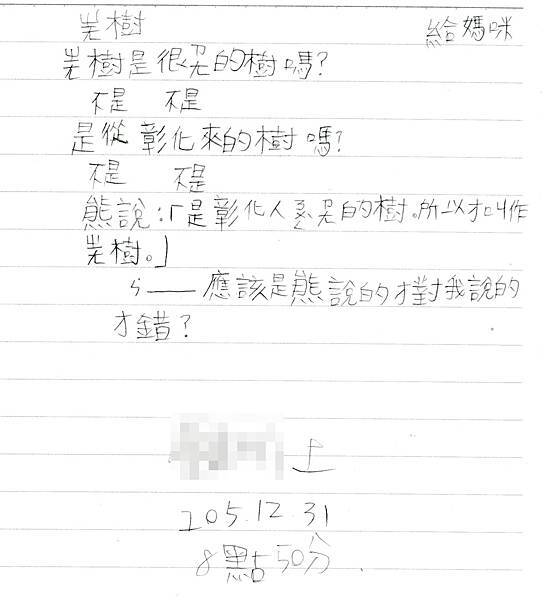 樹 給媽咪
樹是很 的樹嗎？
不是 不是
是從彰化來的樹嗎？
不是 不是
熊說：「是彰化人 的樹。所以才叫作
樹。」
ㄣ——應該是熊說的才對我說的
才錯？
上
205.12.31
8點50分